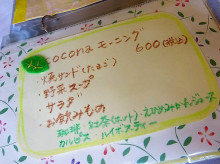 cocona モーニング
600(税込)
・焼サンド(たまご)
・野菜スープ
・サラダ
・お飲みもの
珈琲 紅茶(ホット) えひめみかんジュース
カルピス ルイボスティー